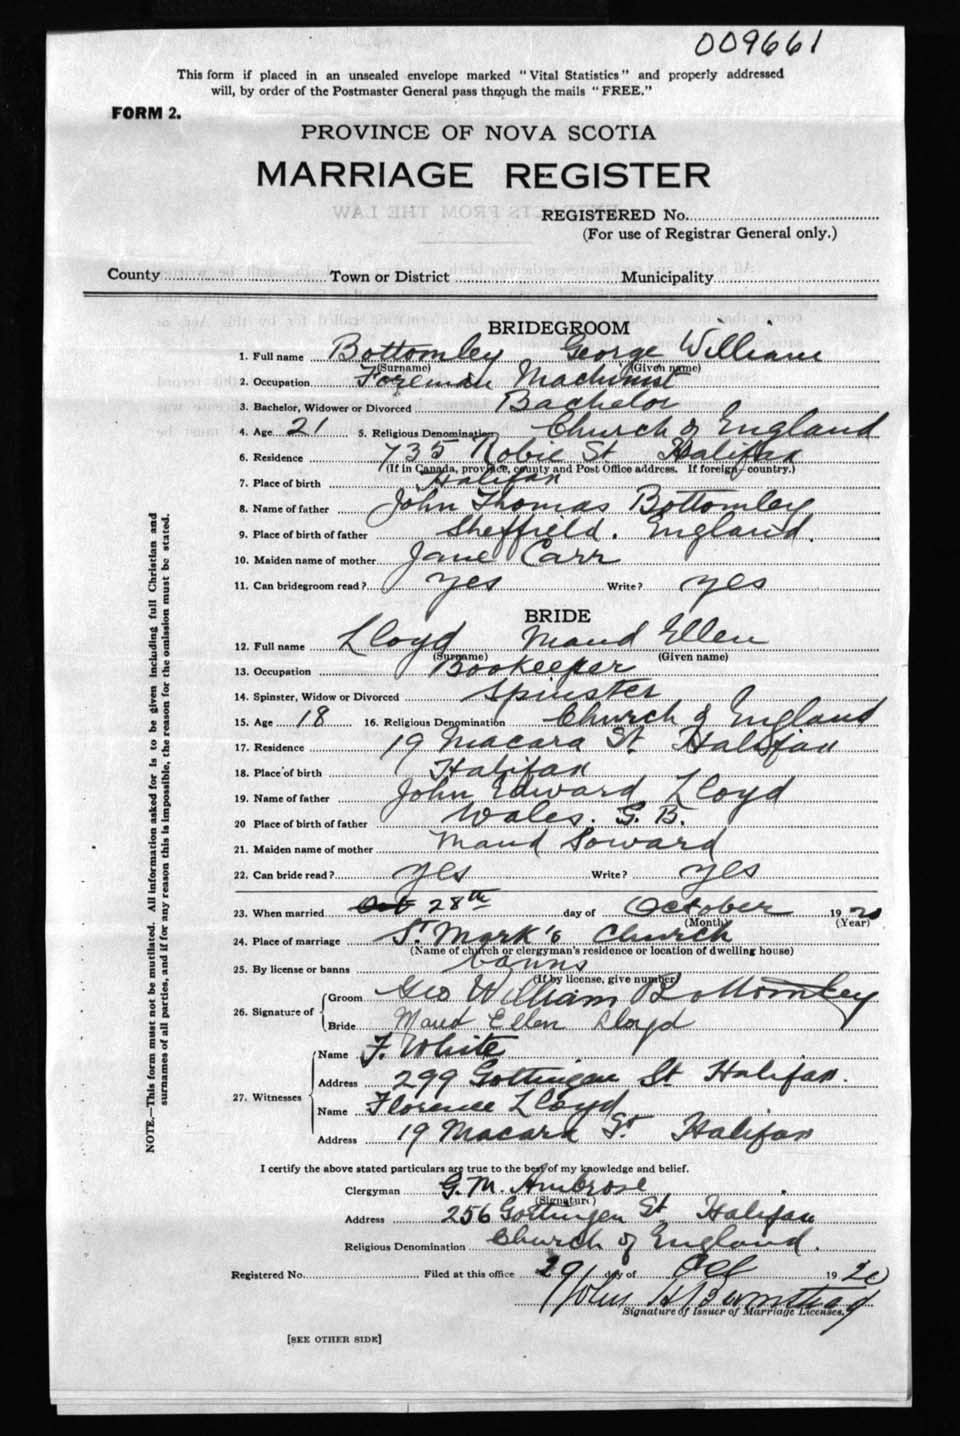 009661
This form if placed in an unsealed envelope marked "Vital Statistics" and properly addressed
will, by order of the Postmaster General pass through the mails "FREE."
FORM 2.
PROVINCE OF NOVA SCOTIA
MARRIAGE REGISTER
REGISTERED No.
(For use of Registrar General only.)
County Town or District Municipality
BRIDEGROOM
1. Full name Bottomley George William
(Surname) (Given name)
2. Occupation Foreman Machinist
3. Bachelor, Widower or Divorced Bachelor
4. Age 21 5. Religious Denomination Church of England
6. Residence 735 Robie St Halifax
(If in Canada, province, county and Post Office address. If foreign country.)
7. Place of birth Halifax
8. Name of father John Thomas Bottomley
9. Place of birth of father Sheffield. England.
10. Maiden name of mother Jane Carr
11. Can bridegroom read? yes Write? yes
BRIDE
12. Full name Lloyd Maud Ellen
(Surname) (Given name)
13. Occupation Bookeeper
14. Spinster, Widow or Divorced Spinster
15. Age 18 16. Religious Denomination Church of England
17. Residence 19 Macara St. Halifax
18. Place of birth Halifax
19. Name of father John Edward Lloyd
20 Place of birth of father Wales. G. B.
21. Maiden name of mother Maud Soward
22. Can bride read? yes Write? yes
23. When married 28th day of October 1920
(Month) (Year)
24. Place of marriage St Mark's Church
(Name of church or clergyman's residence or location of dwelling house)
25. By license or banns banns
(If by license, give number)
26. Signature of Groom Geo William Bottomley
Bride Maud Ellen Lloyd
27. Witnesses Name F. White
Address 299 Gottingen St Halifax.
Name Florence Lloyd
Address 19 Macara St. Halifax
I certify the above stated particulars are true to the best of my knowledge and belief.
Clergyman G. M. Ambrose
(Signature)
Address 256 Gottingen St Halifax
Religious Denomination Church of England.
Registered No. Filed at this office 29 day of Oct 1920
John H Barnstead
Signature of Issuer of Marriage Licenses.
[SEE OTHER SIDE]
NOTE.—This form must not be mutilated. All information asked for is to be given including full Christian and
surnames of all parties, and if for any reason this is impossible, the reason for the omission must be stated.